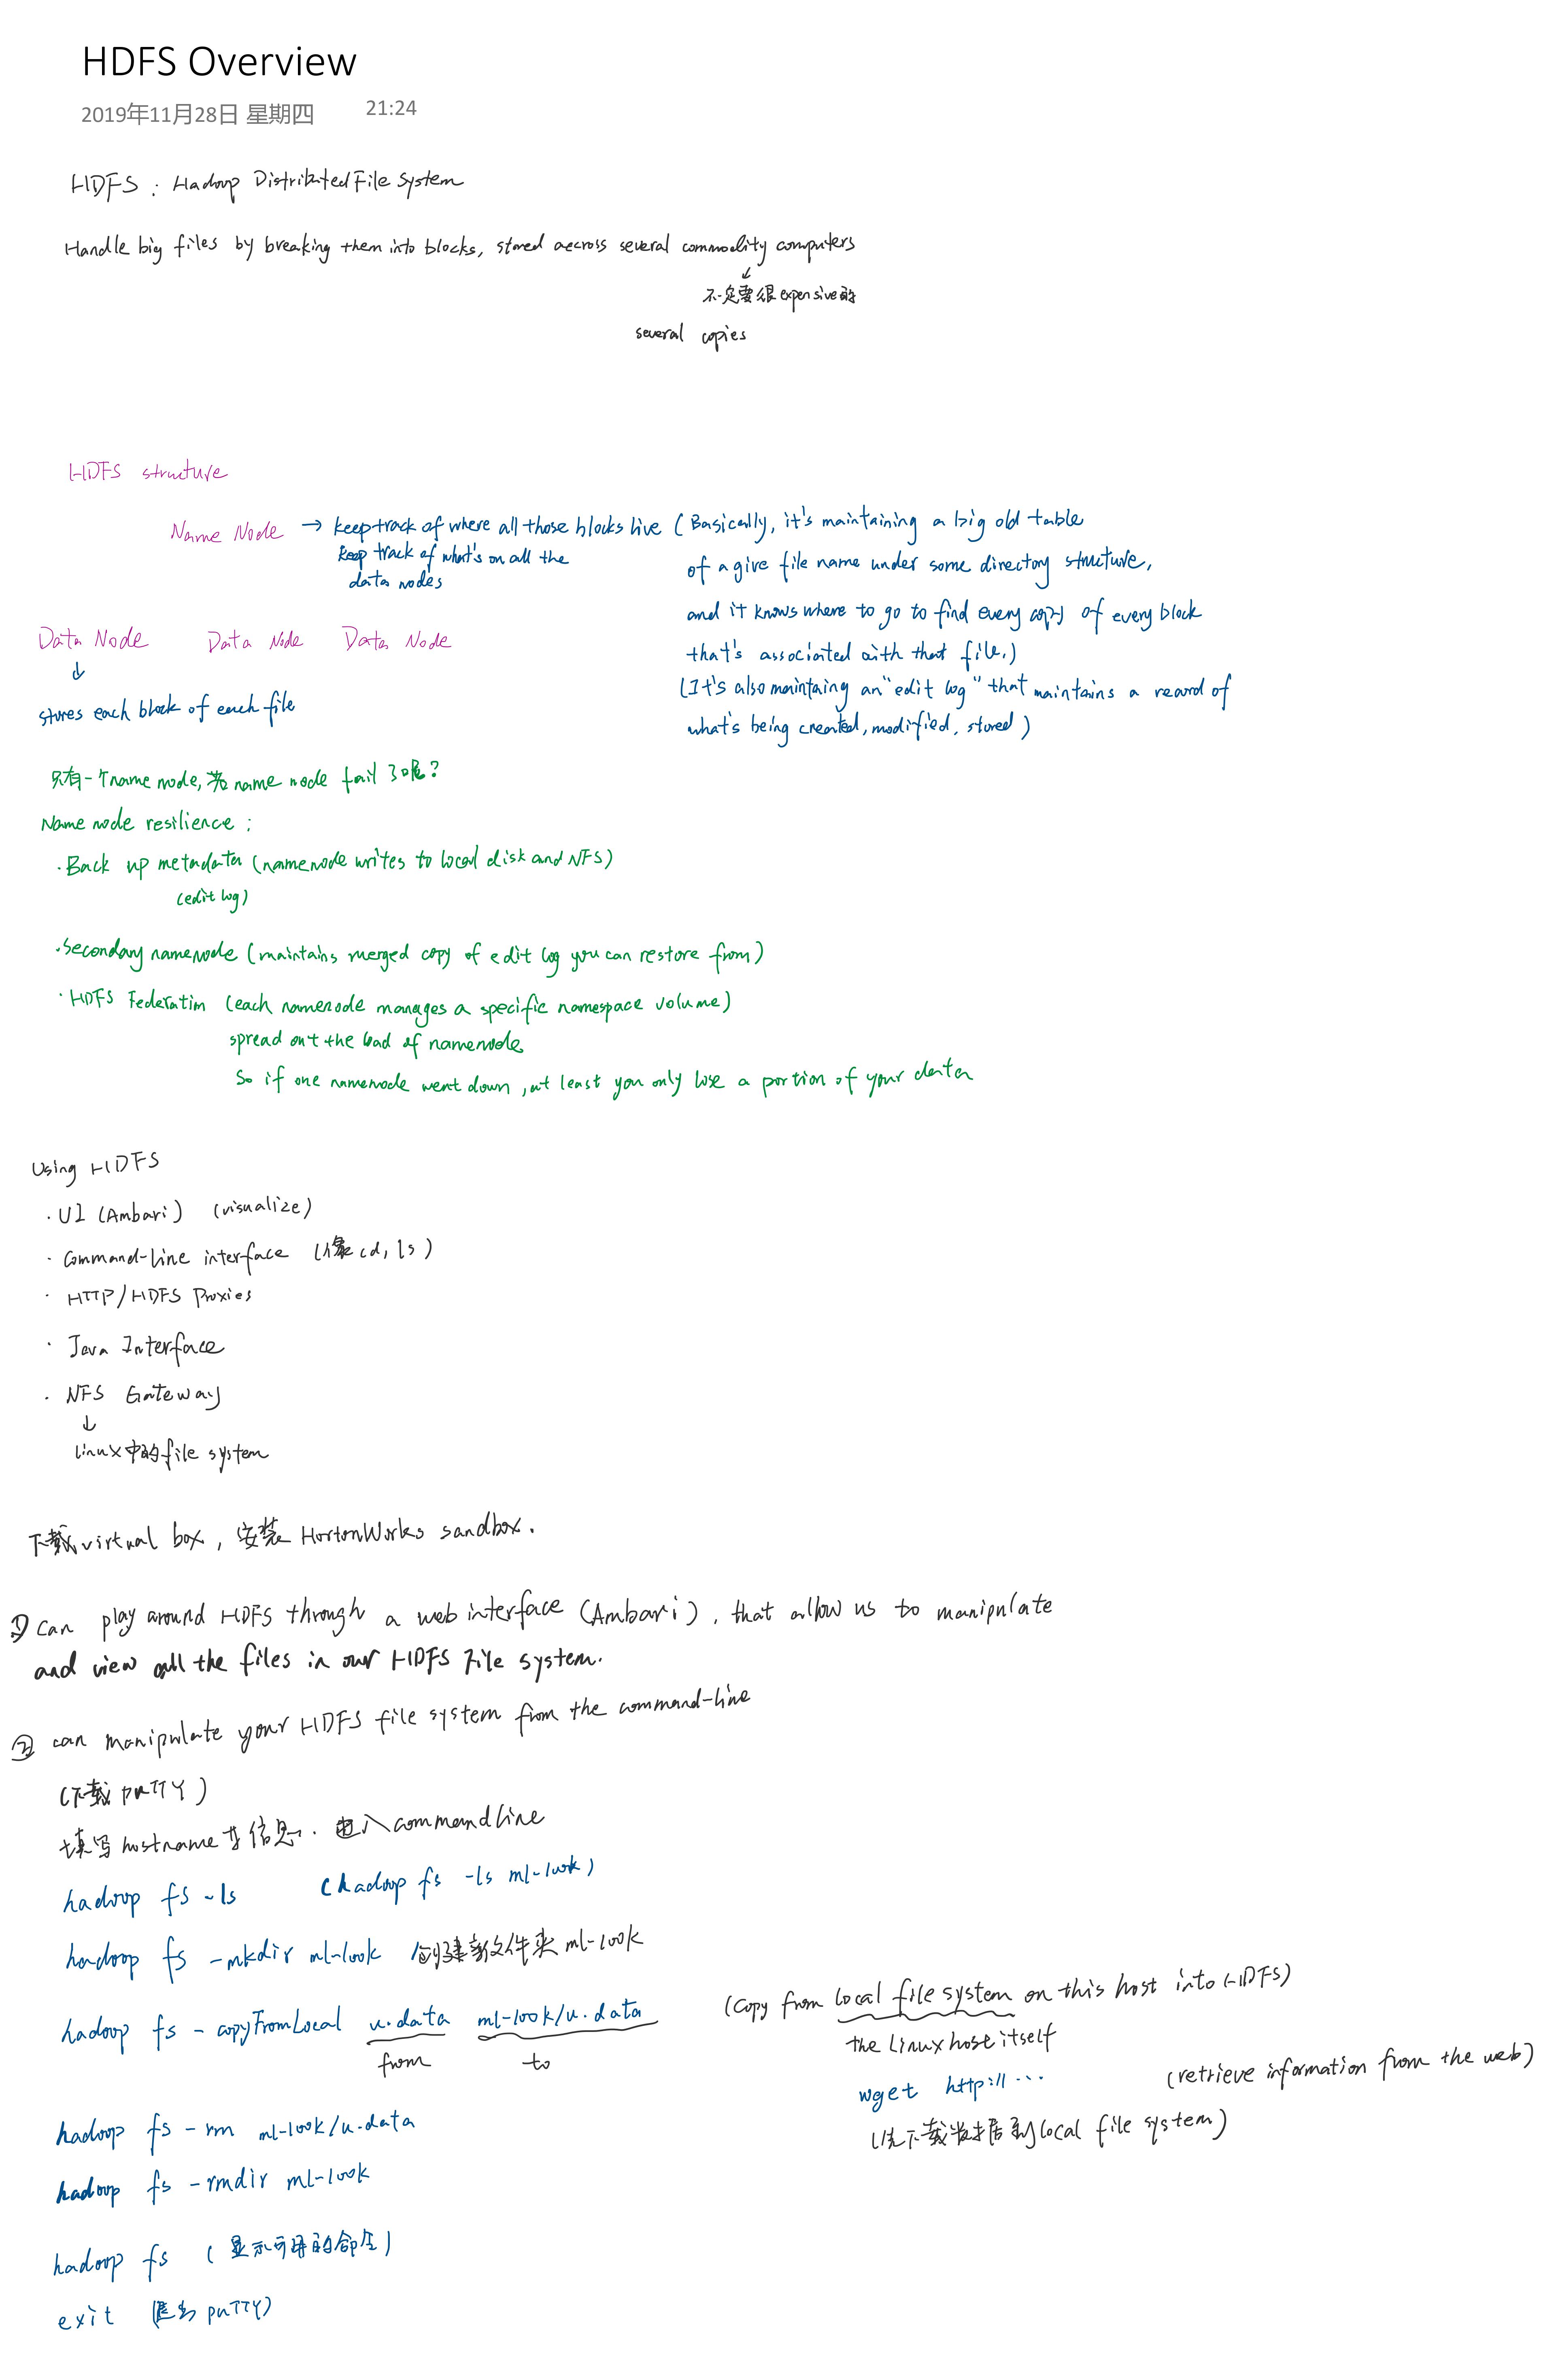 HDFS Overview
2019年11月28日 星期四 21:24
HDFS : Hadoop Distributed File System
Handle big files by breaking them into blocks, stored aecross several commodity computers
↓
不一定要很expensive的
several copies
HDFS structure
Name Node → keep track of where all those blocks live (Basically, it's maintaining a big old table
keep track of what's on all the
data nodes
of a give file name under some directory structure,
and it knows where to go to find every copy of every block
that's associated with that file.)
(It's also maintaing an "edit log" that maintains a record of
what's being created, modified, stored)
Data Node Data Node Data Node
↓
stores each block of each file
只有一个name node, 若name node fail了呢?
Name node resilience :
· Back up metadata (namenode writes to local disk and NFS)
(edit log)
· Secondary namenode (maintains merged copy of edit log you can restore from)
· HDFS Federation (each namenode manages a specific namespace volume)
spread out the load of namenode
So if one namenode went down, at least you only lose a portion of your data
Using HDFS
· UI (Ambari) (visualize)
· Command-Line interface (像cd, ls)
· HTTP/HDFS Proxies
· Java Interface
· NFS Gateway
↓
linux中的file system
下载virtual box, 安装HortonWorks sandbox.
① can play around HDFS through a web interface (Ambari), that allow us to manipulate
and view all the files in our HDFS File system.
② can manipulate your HDFS file system from the command-line
(下载puTTY)
填写hostname等信息. 进入command line
hadoop fs -ls (hadoop fs -ls ml-100k)
hadoop fs -mkdir ml-100k 创建新文件夹ml-100k
hadoop fs -copyFromLocal u.data ml-100k/u.data (Copy from local file system on this host into HDFS)
from to
the Linux host itself
wget http://... (retrieve information from the web)
(先下载数据到local file system)
hadoop fs -rm ml-100k/u.data
hadoop fs -rmdir ml-100k
hadoop fs (显示可用的命令)
exit (退出puTTY)